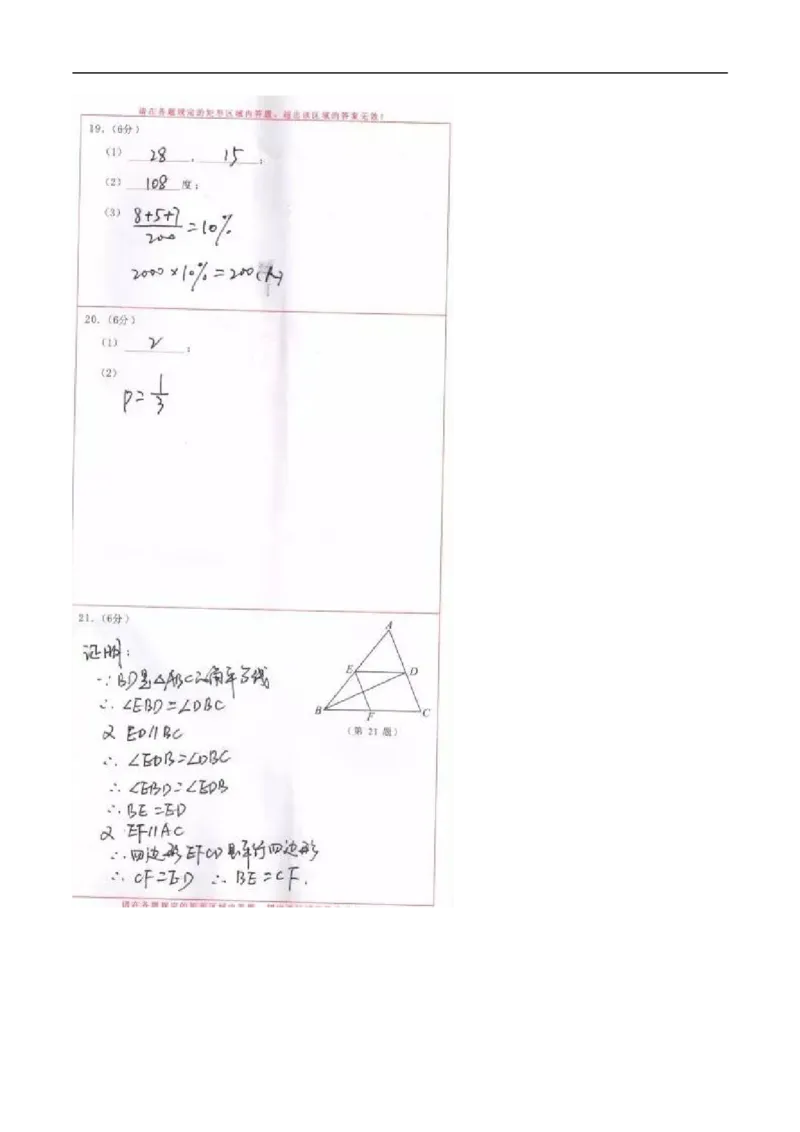 请在各题规定的矩形区域内答题,超出该区域的答案无效!
19.(6分)
(1) 28 , 15 ;
(2) 108 度;
(3) (8+5+7)/200 = 10%
2000×10%=200(人)
20.(6分)
(1) 2 ;
(2)
P=1/3
21.(6分)
证明:
∵BD是△ABC的角平分线
∴∠EBD=∠DBC
又 ED∥BC
∴∠EDB=∠DBC
∴∠EBD=∠EDB
∴BE=ED
又 EF∥AC
∴四边形EFCD是平行四边形
∴CF=ED ∴BE=CF.
A
E D
B F C
(第 21 题)
请在各题规定的矩形区域内答题,超出该区域